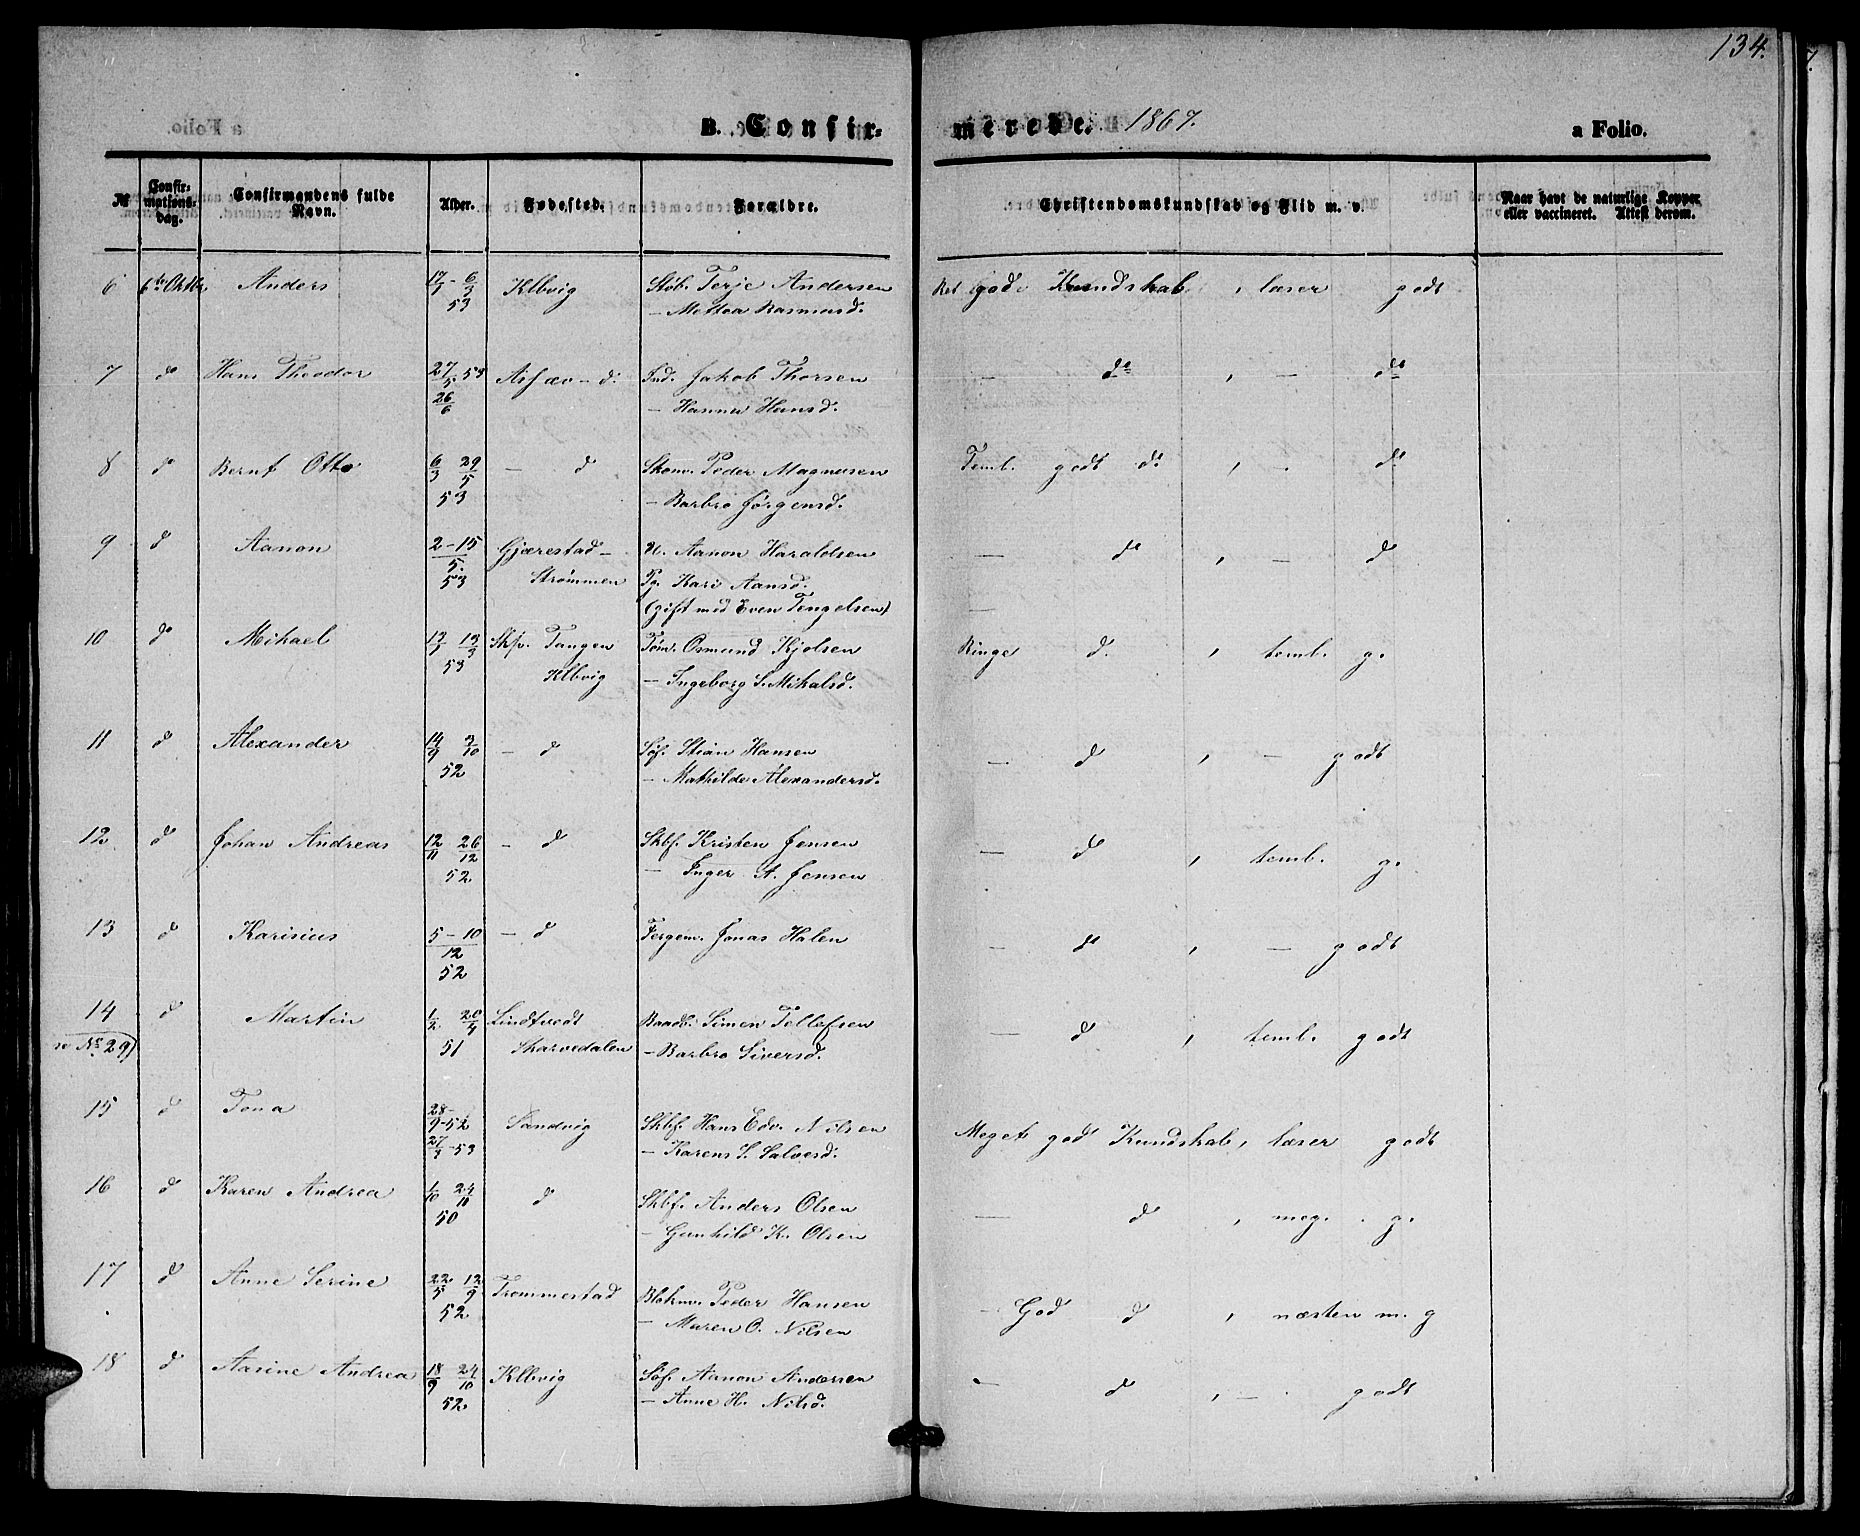 134.
B. Confirmerede. 1867.
a Folio.
№
Confirmations-dag.
Confirmandens fulde Navn.
Alder.
Fødested.
Forældre.
Christendomskundskab og Flid m. v.
Naar havt de naturlige Kopper eller vaccineret. Attest derom.
6 6te Oktbr. Anders 17/1 - 6/3 53 Klbvig Støb. Terje Andersen Ret god Kundskab, læser godt
— Mettea Rasmusd.
7 d Hans Theodor 27/5 53 26/6 Asfæv - d. Ind. Jakob Thorsen — do, — do
— Hanna Hansd.
8 d Bernt Otto 6/3 29/5 53 — d Skom. Peder Magnusen Teml. godt do, — do
— Barbro Jørgensd.
9 d Aanon 2-15/5 53 Gjærestad- U. Aanon Haraldsen — d, — d
Strømmen Pg. Kari Aansd.
(gift med Even Tengelsen) —
10 d Mihael 17/1 13/3 53 Skp. Tangen Tøm. Osmund Kjølsen Ringe d., teml. g.
Klbvig — Ingeborg S. Mihalsd.
11 d Alexander 14/9 3/10 52 — d Søf. Stian Hansen — d, — godt
— Mathilde Alexandersd.
12 d Johan Andreas 12/11 26/12 52 — d Skbf. Kristen Jensen — d, teml. g.
— Inger A. Jensen
13 d Karisius 5-10/12 52 — d Fergem. Jonas Halen — d, — godt
14 d Martin 1/2 20/4 51 Lindtvedt Baadb. Simen Tellefsen — d, teml. godt
se No. 29) Skarvedalen — Barbro Siversd.
15 d Tona 28/9-52 27/3-53 Sandvig Skbf. Hans Edv. Nilsen Meget god Kundskab, læser godt
— Karens S. Salvesd.
16 d Karen Andrea 1/10 24/11 50 d Skbf. Anders Olsen — d, meg. g.
— Gunhild K. Olsen
17 d Anne Serine 22/5 12/9 52 Trommestad Blokm. Peder Hansen — God d, næsten m. g
— Maren O. Nilsen
18 d Aasine Andrea 18/9 24/10 52 Klbvig Søf. Aanon Andersen — d, — godt
— Anne H. Nilsd.